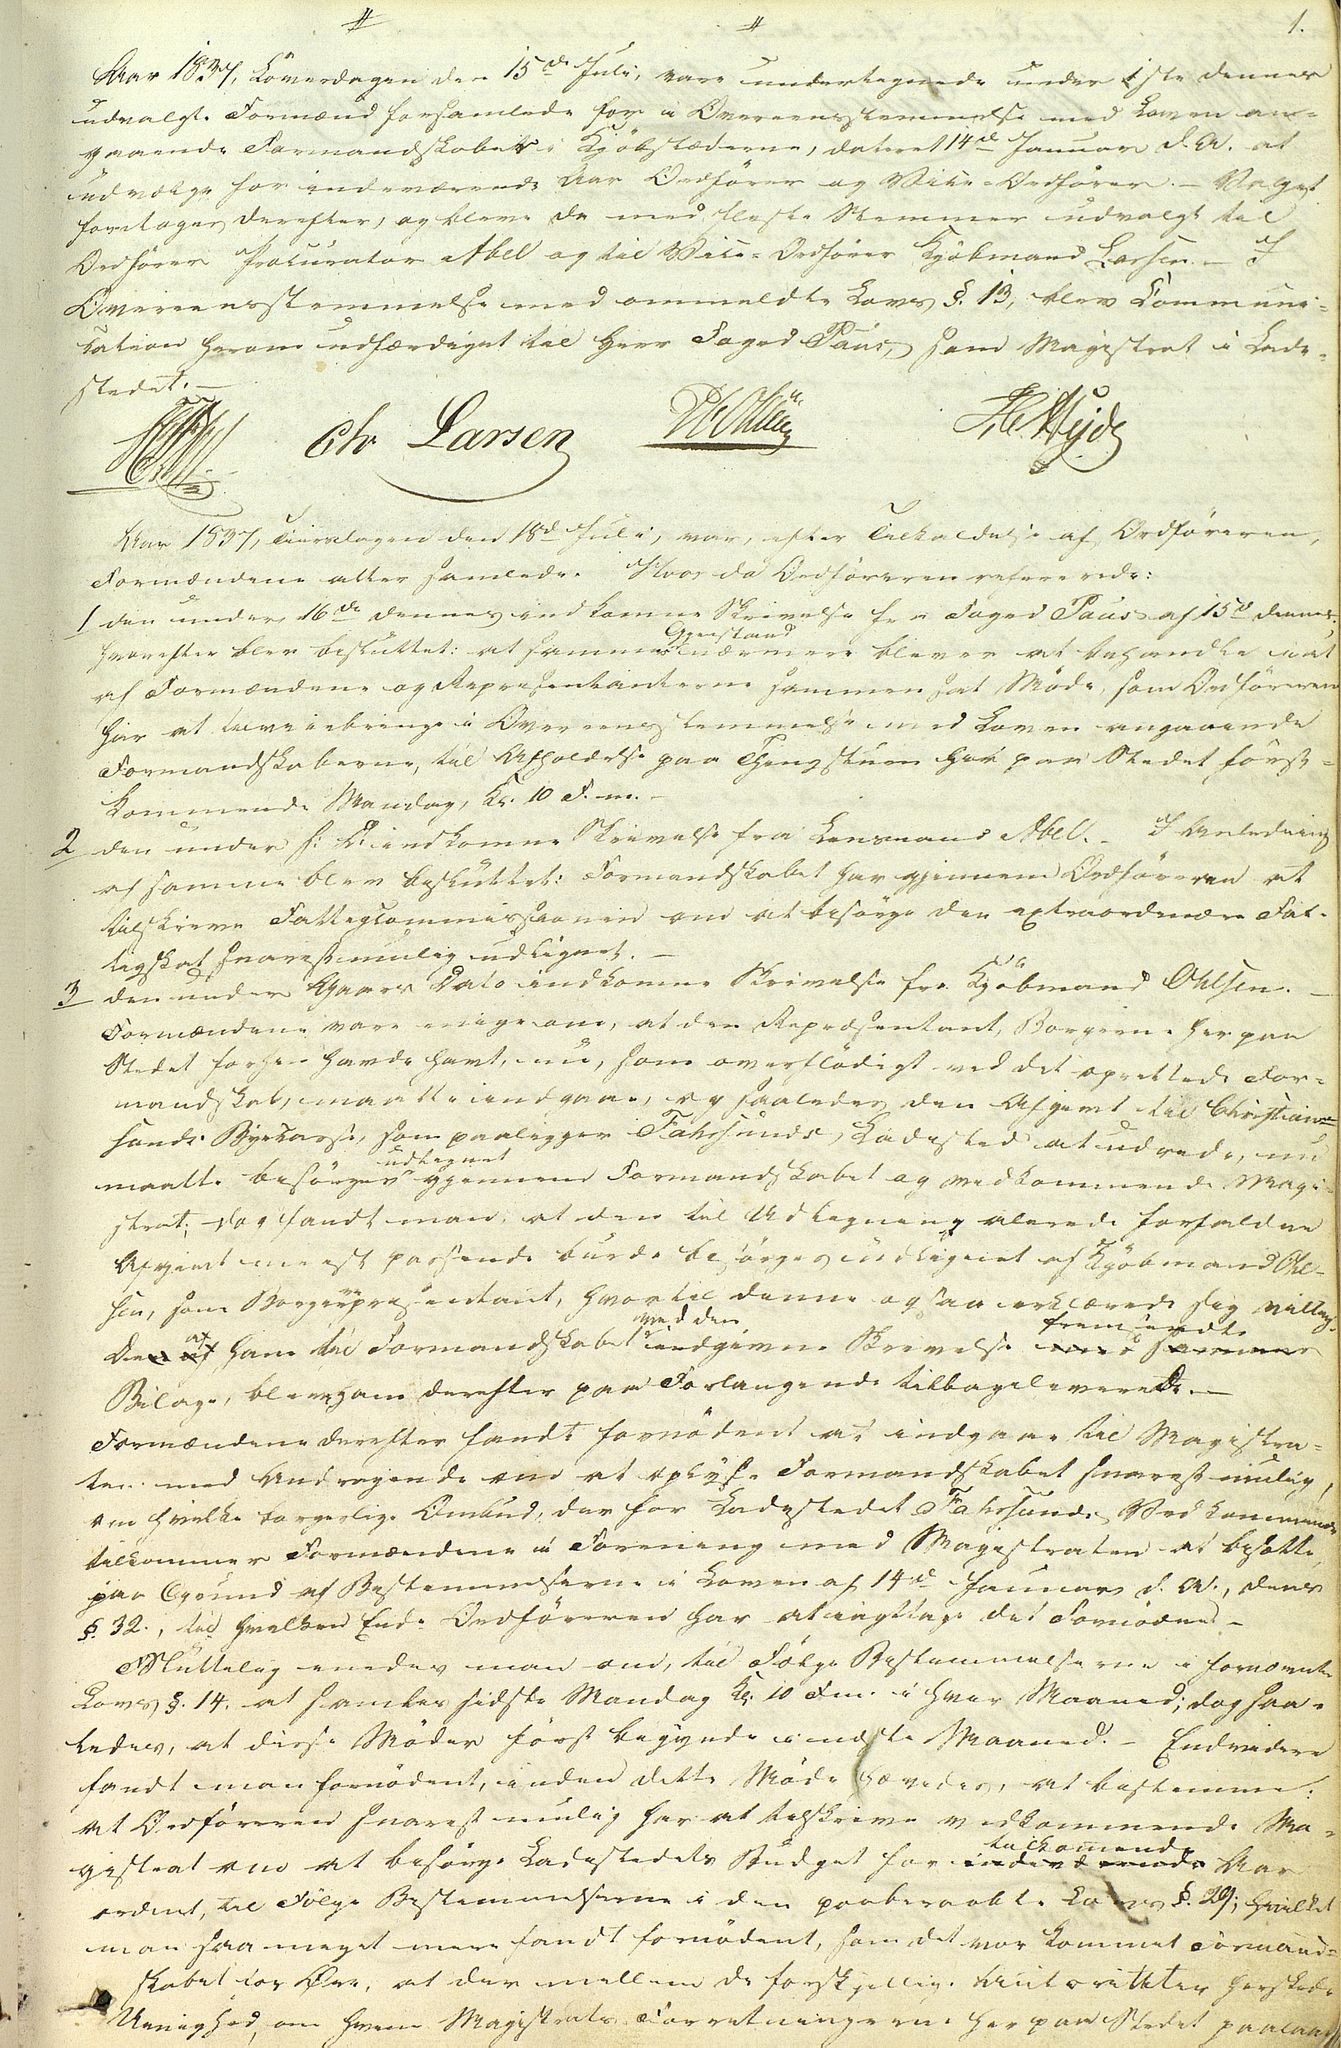 1.
Aar 1837, Löverdagen den 15de Juli, vare undertegnede under 1ste dennes
udvalgte Formænd forsamlede for i Overeensstemmelse med Loven an-
gaaende Formandskabet i Kjöbstæderne, dateret 14de Januar d. A. at
udvælge for indeværende Aar Ordfører og Vice-Ordfører. – Valget
foretoges derefter, og bleve da med fleste Stemmer udvalgt til
Ordfører Procurator Abel og til Vice-Ordfører Kjöbmand Larsen. – I
Overeensstemmelse med ommeldte Lovs §. 13, blev Communi-
cation herom udfærdiget til Herr Foged Paus, som Magistrat i Lade-
stedet. –
Chr Larsen
Aar 1837, Tiirsdagen den 18de Juli, var, efter Tilholdelse af Ordføreren,
Formændene atter samlede. Hvor da Ordføreren refererede:
1 den under 16de dennes indkomne Skrivelse fra Foged Paus af 15de dennes,
Gjenstand
hvorefter blev besluttet: at sammes nærmere bliver at behandle i et
af Formændene og Repræsentanterne sammensat Møde, som Ordføreren
har at tilveiebringe i Overeensstemmelse med Loven angaaende
Formandskaberne, til Afholdelse paa Thingstuen her paa Stedet først-
kommende Mandag, Kl. 10 F. m. –
2 den under s. D. indkomne Skrivelse fra Lensmand Abel. – I Anledning
af samme blev besluttet: Formandskabet har gjennem Ordføreren at
tilskrive Fattigcommissionen om at besørge den extraordinære Fat-
tigskat snarest mulig udlignet. –
3 den under Gaars Dato indkomne Skrivelse fra Kjöbmand Ohlsen. –
Formændene vare enige om, at den Repræsentant, Borgerne her paa
Stedet forhen havde havt, nu, som overflødigt ved det oprettede For-
mandskab, maatte indgaae, og saaledes den Afgivt til Christian-
sands Byekasse, som paaligger Fahrsunds Ladested at udrede, nu
udlignet
maatte besørges gjennem Formandskabet og vedkommende Magi-
strat; dog fandt man, at den til Udligning alerede forfaldne
Afgivt meest passende burde besørges udlignet af Kjöbmand Ohl-
sen, som Borgerrepræsentant, hvortil denne ogsaa erklærede sig villig.
af med den fremsendte
Den af ham til Formandskabet indgivne Skrivelse med sammes
Bilage, blev ham derefter paa Forlangende tilbageleverede. –
Formændene derefter fandt fornødent at indgaae til Magistra-
ten med Andragende om at oplyse Formandskabet snarest mulig,
om hvilke borgerlige Ombud, der for Ladestedet Fahrsunds Vedkommende
tilkommer Formændene i Forening med Magistraten at besætte,
paa Grund af Bestemmelserne i Loven af 14de Januar d. A., dens
§. 32., til hvilken Ende Ordføreren har at iagttage det Fornødne. –
Sluttelig enedes man om, til Følge Bestemmelserne i fornævnte
Lovs §. 14. at samles sidste Mandag Kl. 10 Fm. i hver Maaned; dog saa-
ledes, at disse Møder först begynde i næste Maaned. – Endvidere
fandt man fornødent, inden dette Møde hævedes, at bestemme:
at Ordføreren snarest mulig har at tilskrive vedkommende Ma-
tilkomende
gistrat om at besørge Ladestedets Budget for indeværende Aar
ordnet, til Følge Bestemmelserne i den paaberaabte Lovs §. 29; hvilket
man saa meget mere fandt fornødent, som det var kommet Formand-
skabet for Øre, at der mellem de forskjellige Autoriteter herskede
Uenighed, om hvem Magistrats Forretningerne her paa Stedet paalaae